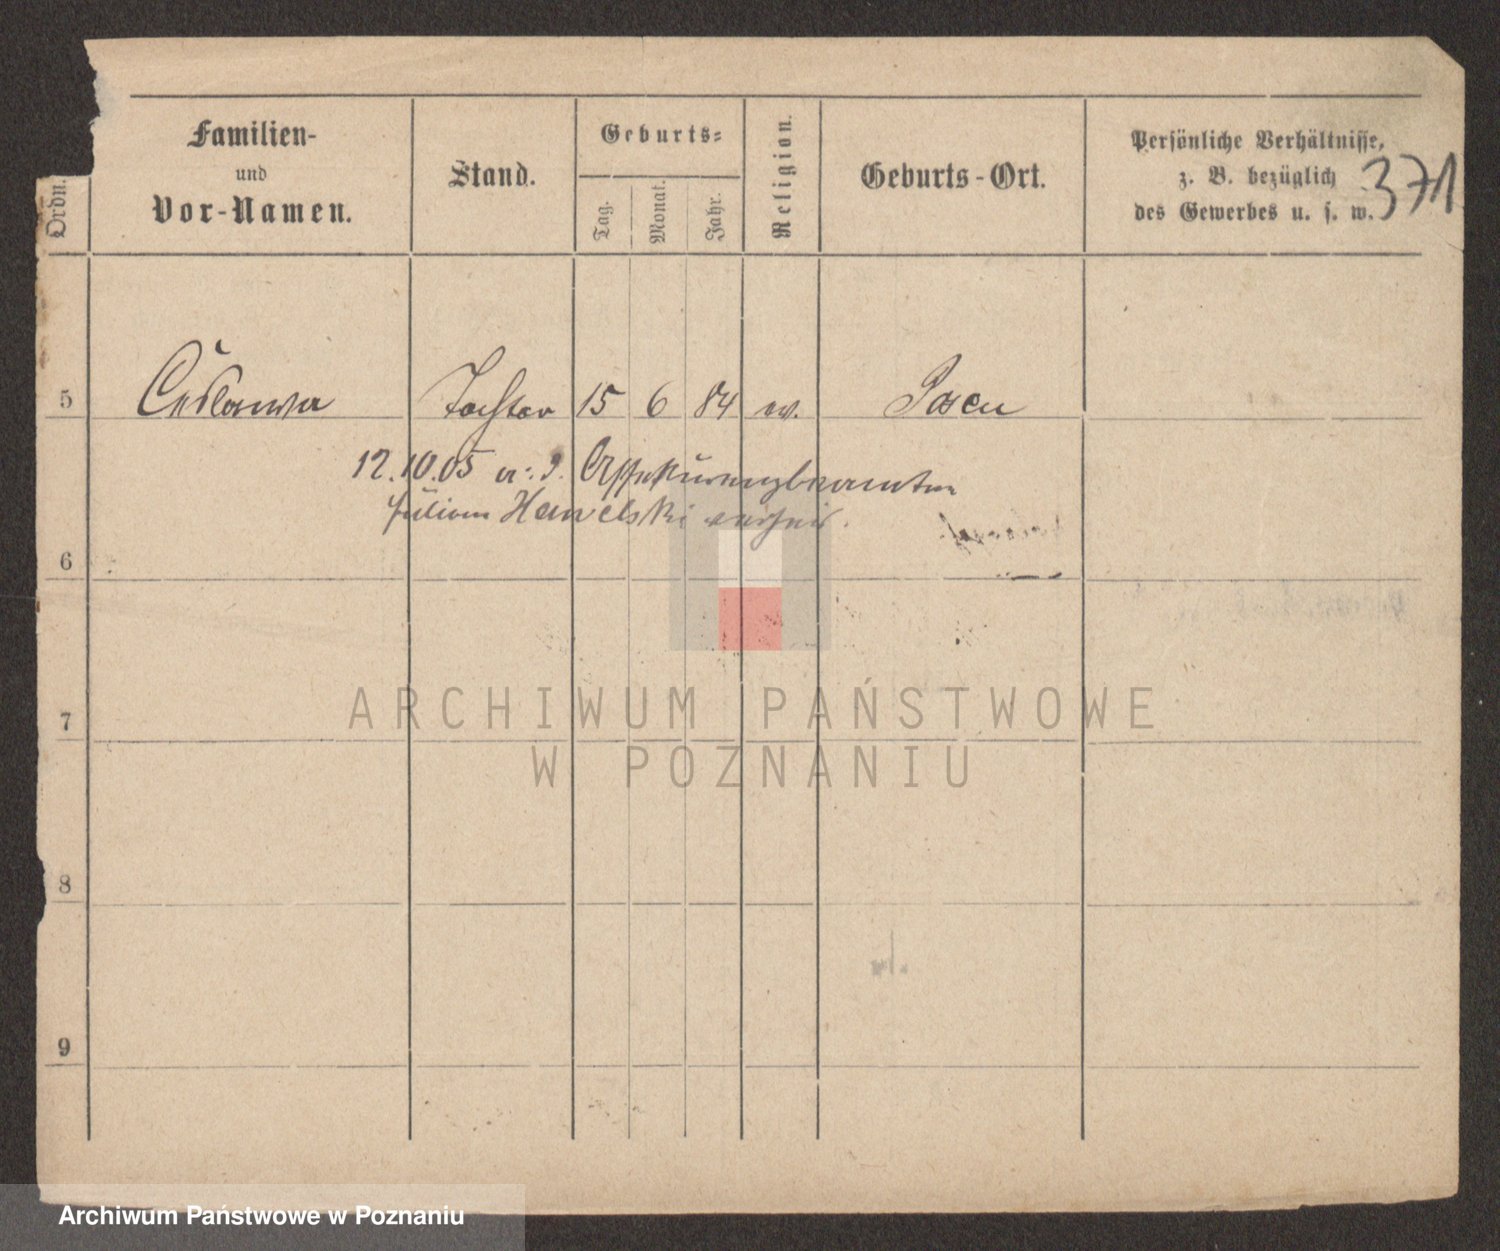 Ordn.
Familien-
und
Vor-Namen.
Stand.
Geburts-
Tag.
Monat.
Jahr.
Religion.
Geburts-Ort.
Persönliche Verhältnisse,
z. B. bezüglich
des Gewerbes u. s. w.
371
5 Česlawa Tochter 15 6 84 w. Posen
12.10.05 a. d. Assekuranzbeamten
Julian Hawelski verheir.
6
7
8
9
ARCHIWUM PAŃSTWOWE
W POZNANIU
Archiwum Państwowe w Poznaniu